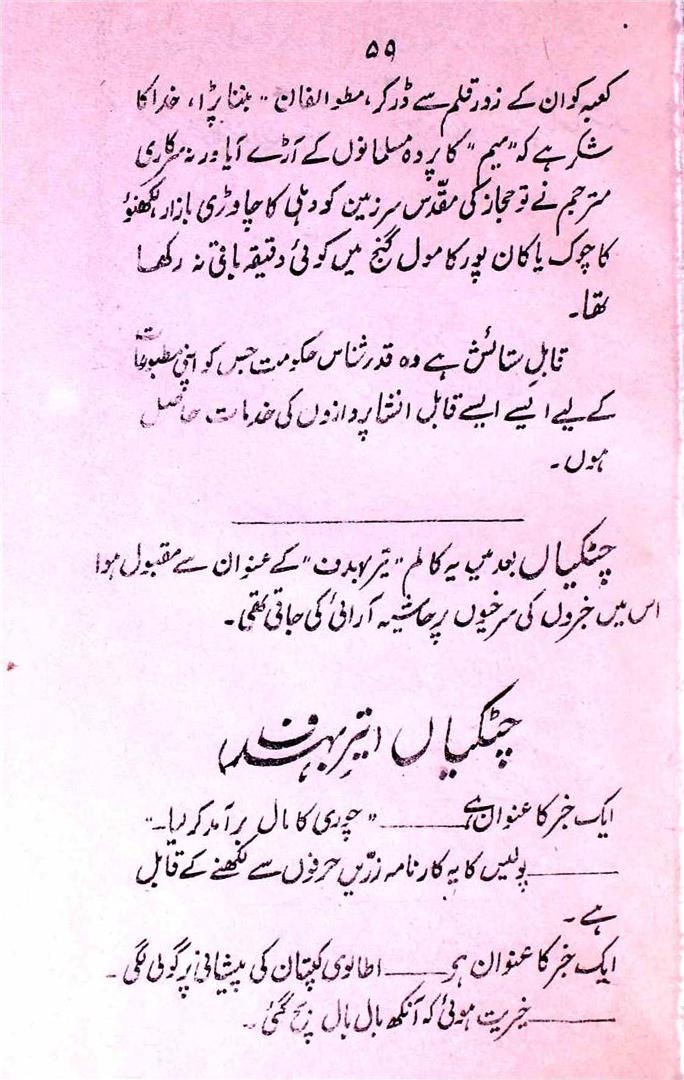 ۵۹
کعبہ کو ان کے زورِ قلم سے ڈر کر، مطوالفان" بننا پڑا، خدا کا
شکر ہے کہ "میم" کا پردہ مسلمانوں کے آڑے آیا ورنہ سرکاری
مترجم نے تو حجاز کی مقدّس سرزمین کو دہلی کا چاوڑی بازار، لکھنؤ
کا چوک یا کان پور کا مول گنج میں کوئی دقیقہ باقی نہ رکھا
تھا۔
قابلِ ستائش ہے وہ قدر شناس حکومت جس کو اپنی مطبوعات
کے لیے ایسے ایسے قابل انشاپردازوں کی خدمات حاصل
ہوں۔
چٹکیاں بعد میں یہ کالم "تیر بہدف" کے عنوان سے مقبول ہوا
اس میں خبروں کی سرخیوں پر حاشیہ آرائی کی جاتی تھی۔
چٹکیاں (تیر بہدف)
ایک خبر کا عنوان ہے ——— "چوری کا مال برآمد کر لیا۔"
——— پولیس کا یہ کارنامہ زرّیں حرفوں سے لکھنے کے قابل
ہے۔
ایک خبر کا عنوان ہے ——— اطالوی کپتان کی پیشانی پر گولی لگی۔
——— خیریت ہوئی کہ آنکھ بال بال بچ گئی۔